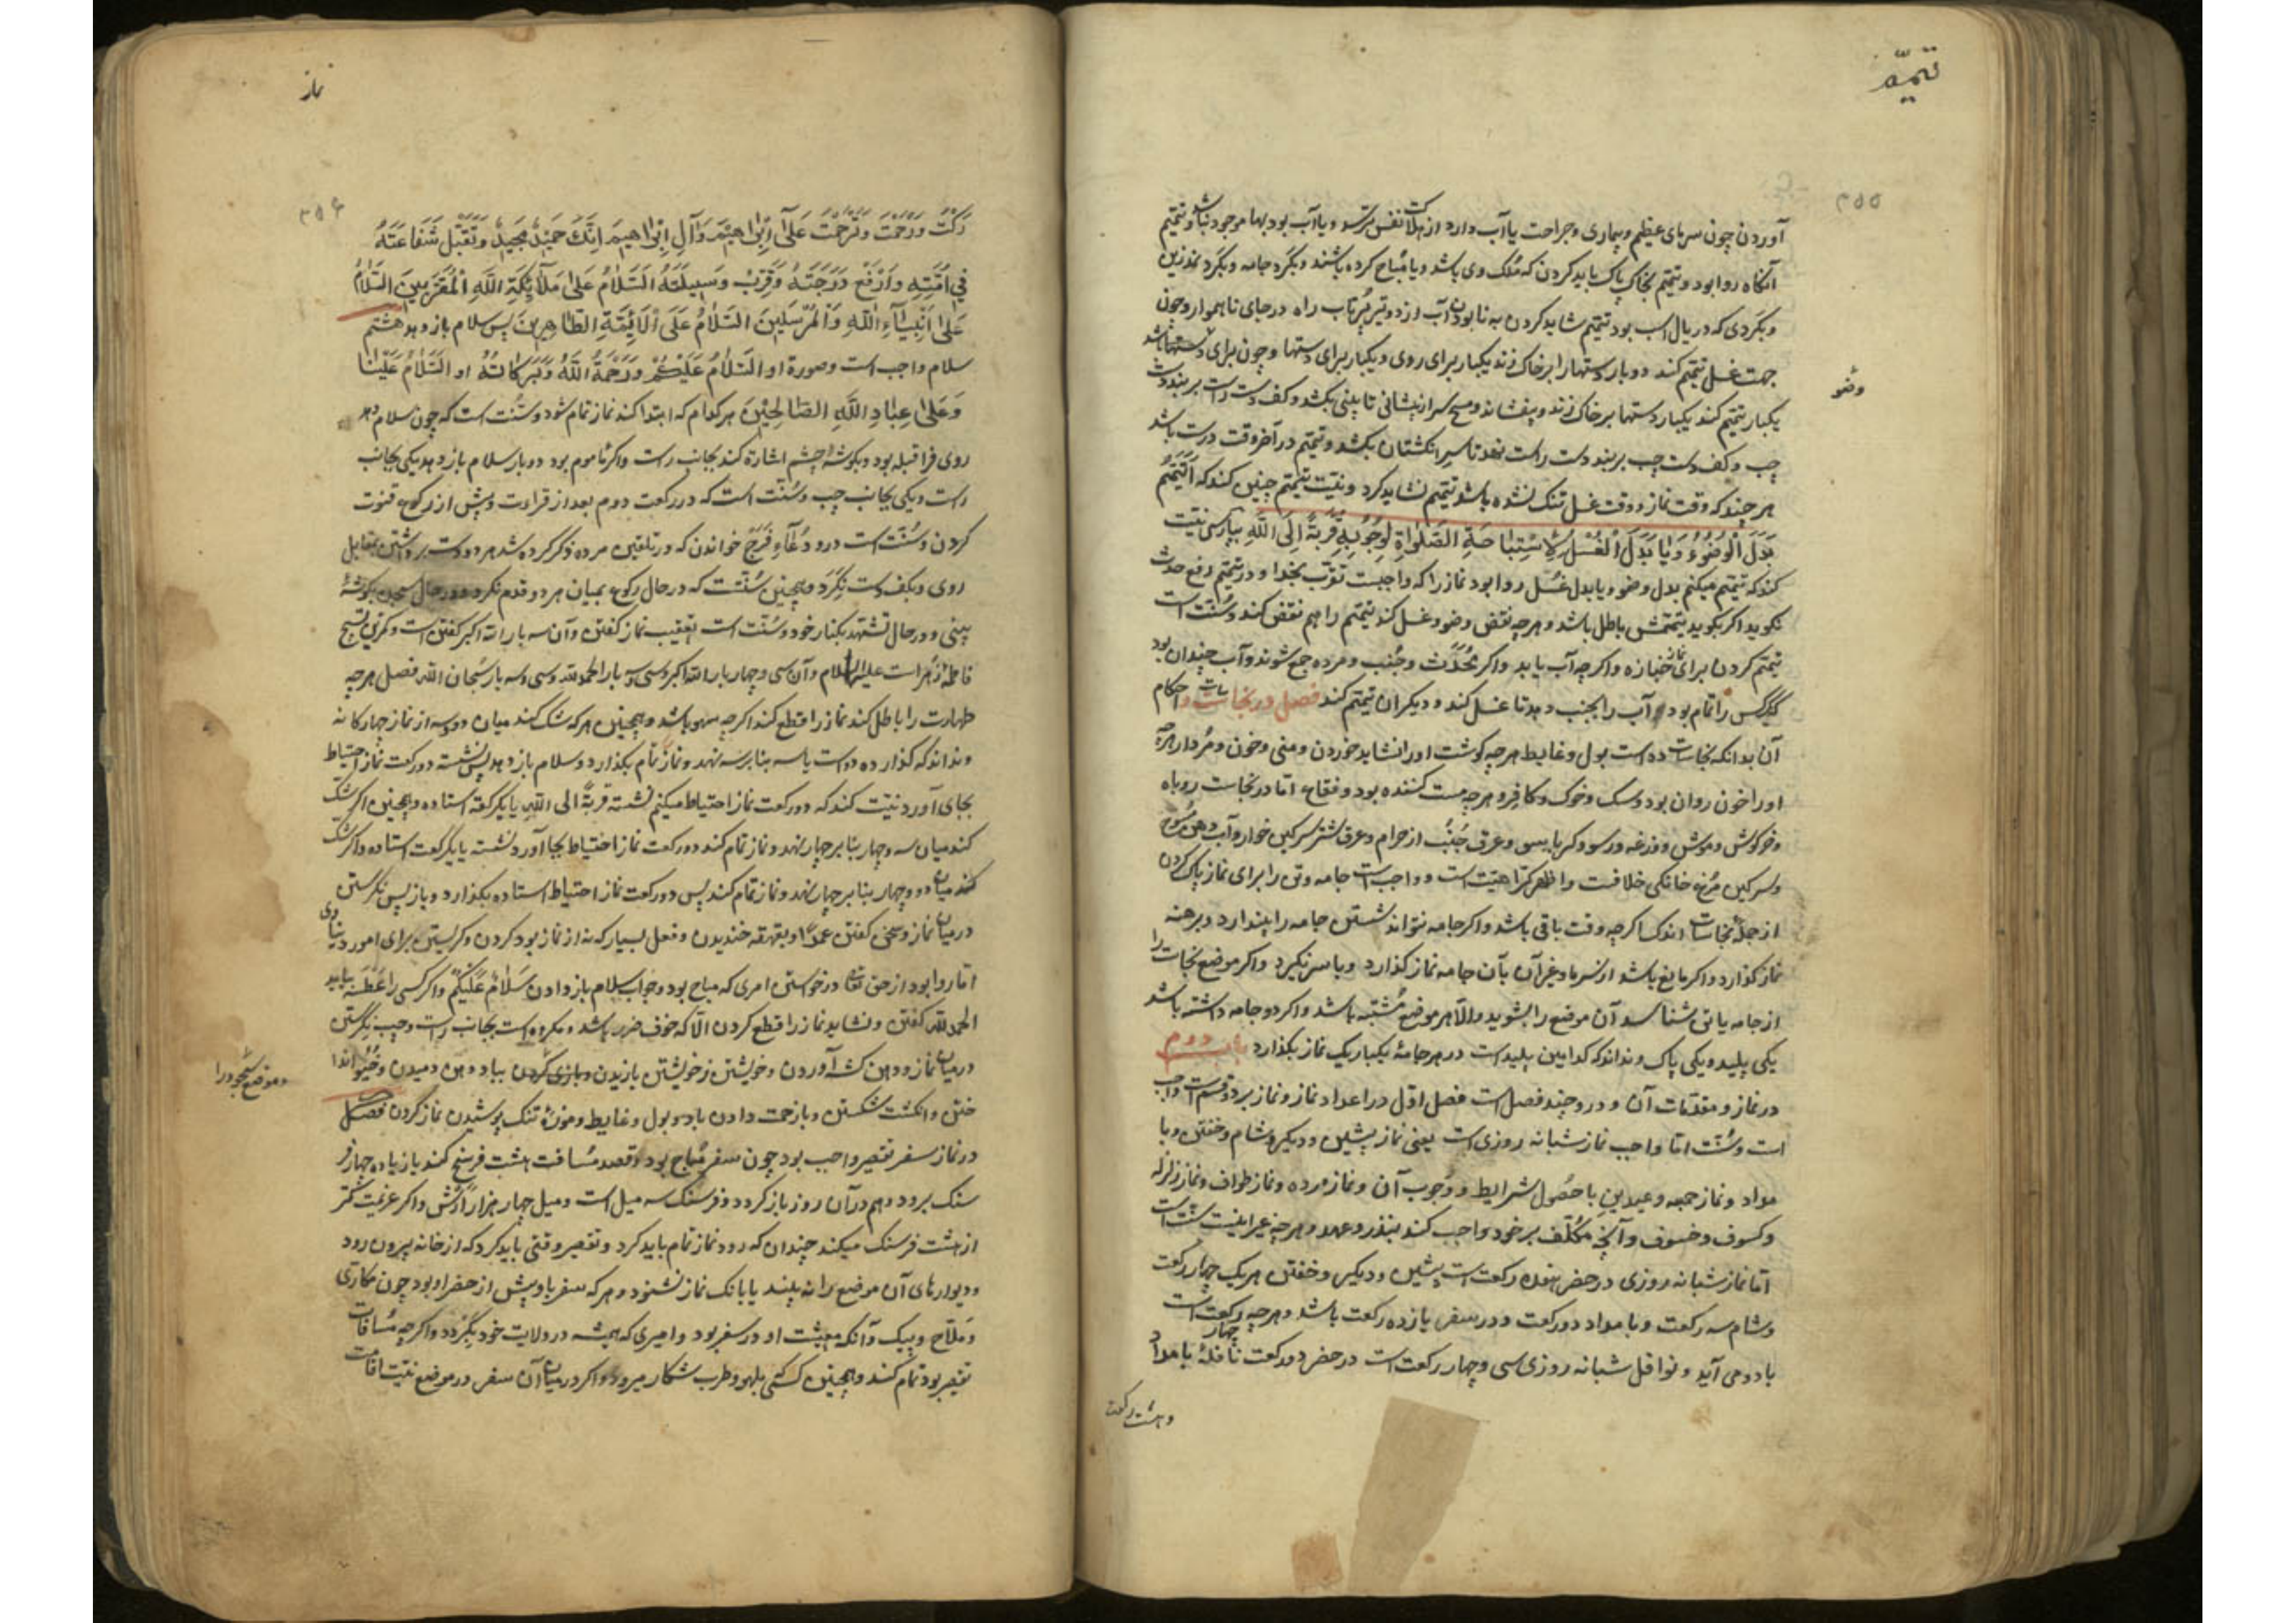 تتمّه
آوردن چون سرمای عظیم و بیماری و جراحت یا آب دارد از هلاکت نفس ترسد و یا آب بود بها موجود نباشد و تیمّم
آنگاه روا بود و تیمّم بخاک پاک باید کردن که مُلک وی باشد و یا مُباح کرده باشند و بکَرد جامه و بکَرد نمدزین
و بکَردی که در یال اسب بود تیمّم شاید کردن به نابودن آب از دو تیر پرتاب راه در جای ناهموار و چون
جهت غسل تیمّم کند دو بار دستها را بر خاک زند یکبار برای روی و یکبار برای دستها و چون برای وضو باشد
وضو
یکبار تیمّم کند یکبار دستها بر خاک زند و بیفشاند و مسح سر از پیشانی تا بینی بکشد و کف دست راست بر بند دست
چپ و کف دست چپ بر بند دست راست نهد تا سر انکشتان بکشد و تیمّم در آخر وقت درست باشد
هر چند که وقت نماز و وقت غسل تنک نشده باشد تیمّم نشاید کرد و نیّت تیمّم چنین کند که اَتَیَمَّمُ
بَدَلَ الْوُضُوْءِ وَیَا بَدَلَ الْغُسْلِ لِاسْتِبَاحَةِ الصَّلوٰاةِ لِوُجُوْبِهِ قُرْبَةً اِلَی اللّٰهِ بپارسی نیّت
کند که تیمّم میکنم بدل وضو و یا بدل غسل روا بود نماز را که واجبست تقرّب بخدا و در تیمّم رفع حدث
نکوید اکر بکوید تیمّمش باطل باشد و هر چه نقض وضو و غسل کند تیمّم را هم نقض کند و سُنّت است
تیمّم کردن برای نماز جنازه و اکر چه آب یابد و اکر مُحْدِث و جُنب و مرده جمع شوند و آب چندان بود
یکی کس را تمام بود آب را بجنب دهد تا غسل کند و دیکران تیمّم کند فصل در نجاسات و احکام
آن بدانکه نجاسات ده است بول و غایط هر چه کوشت او را نشاید خوردن و منی و خون و مُردار هر چه
او را خون روان بود و سک و خوک و کافر و هر چه مست کننده بود و فقاع امّا در نجاست روباه
و خرکوش و موش و وزغه و رسو و کرباسو و عرق جُنُب از حرام و عرق شتر سرکین خوار و آب دهن مسوخ
و سرکین مرغ خانکی خلافست و اظهر کراهیّت است و واجب است جامه و تن را برای نماز پاک کردن
از جملهٔ نجاسات اندک اکر چه وقت باقی باشد و اکر جامه نتواند شستن جامه را بیندازد و برهنه
نماز کذارد و اکر مانع باشد از سرما و غیر آن بآن جامه نماز کذارد و با سر نکیرد و اکر موضع نجاست را
از جامه یا تن شناسد آن موضع را بشوید و الّا هر موضع مُشتبه باشد و اکر دو جامه داشته باشد
یکی پلید و یکی پاک و نداند که کدامین پلید است در هر جامهٔ یکبار یک نماز بکذارد باب دوم
در نماز و مقدّمات آن و درو چند فصل است فصل اوّل در اعداد نماز و نماز بر دو قسم است واجب
است و سُنّت امّا واجب نماز شبانه روزی است یعنی نماز پیشین و دیکر و شام و خفتن و با
مداد و نماز جمعه و عیدین با حصُول شرایط و وُجوب آن و نماز مرده و نماز طواف و نماز زلزله
و کسوف و خسوف و آنچه مکلّف بر خود واجب کند بنذر و عهد و هر چه غیر اینست سُنّت است
امّا نماز شبانه روزی در حضر هفده رکعت است پیشین و دیکر و خفتن هر یک چهار رکعت
و شام سه رکعت و بامداد دو رکعت و در سفر یازده رکعت باشد و هر چه چهار رکعت است
با دو می آید و نوافل شبانه روزی سی و چهار رکعت است در حضر دو رکعت نافلهٔ بامداد
و هشت رکعت
نماز
رَکْتَ وَرَحِمْتَ وَتَرَحَّمْتَ عَلٰی اِبْرٰاهِیْمَ وَآلِ اِبْرٰاهِیمَ اِنَّکَ حَمِیْدٌ مَجِیدٌ وَتَقَبَّلْ شَفَاعَتَهُ
فِی اُمَّتِهِ وَارْفَعْ دَرَجَتَهُ وَقَرِّبْ وَسِیلَتَهُ اَلسَّلَامُ عَلٰی مَلٰآئِکَةِ اللّٰهِ الْمُقَرَّبِینَ السَّلَامُ
عَلٰی اَنْبِیٰآءِ اللّٰهِ وَالْمُرْسَلِینَ السَّلَامُ عَلَی الْاَئِمَّةِ الطّٰاهِرِینَ پس سلام باز دهد هشتم
سلام واجب است و صورة او السَّلَامُ عَلَیْکُمْ وَرَحْمَةُ اللّٰهِ وَبَرَکٰاتُهُ او السَّلَامُ عَلَیْنَا
وَعَلٰی عِبٰادِ اللّٰهِ الصّٰالِحِیْنَ هر کدام که ابتدا کند نماز تمام شود و سُنّت است که چون سلام دهد
روی فرا قبله بود و بکوشهٔ چشم اشارة کند بجانب راست و اکر ماموم بود دو بار سلام باز دهد یکی بجانب
راست و یکی بجانب چپ و سُنّت است که در رکعت دوم بعد از قراءت و پیش از رکوع قنوت
کردن و سُنّت است درو دُعآءِ فَرَجْ خواندن که در تلقین مرده ذکر کرده شد هر دو دست برداشتن بمقابل
روی و بکف دست نکَرد و همچنین سُنّتست که در حال رکوع بمیان هر دو قدم نکرد و در حال سجده بکوشهٔ
بینی و در حال تشهّد بکنار خود و سُنّت است تعقیب نماز کفتن و آن سه بار الله اکبر کفتن است و کمترین تسبیح
فاطمهٔ زهراست علیها السلام و آن سی و چهار بار الله اکبر و سی و سه بار الحمد لله و سی و سه بار سُبحان الله فصل هر چه
طهارت را باطل کند نماز را قطع کند اکر چه سهو باشد و همچنین هر که شک کند میان دو و سه از نماز چهارکانه
و نداند که کذارده دو است یا سه بنا بر سه نهد و نماز تمام بکذارد و سلام باز دهد پس نشسته دو رکعت نماز احتیاط
بجای آورد نیّت کند که دو رکعت نماز احتیاط میکنم نشسته قربةً الی اللّٰه یا یک رکعة استاده و همچنین اکر شک
کند میان سه و چهار بنا بر چهار نهد و نماز تمام کند دو رکعت نماز احتیاط بجا آورد نشسته یا یک رکعت استاده و اکر شک
کند میان دو و چهار بنا بر چهار نهد و نماز تمام کند پس دو رکعت نماز احتیاط استاده بکذارد و باز پس نکرستن
در میان نماز و سخن کفتن عمدًا و بقهقهه خندیدن و فعل بسیار که نه از نماز بود کردن و کریستن برای امور دنیاوی
امّا روا بود از حق تعٰ درخواستن امری که مباح بود و جواب سلام باز دادن سَلَامٌ عَلَیْکُمْ و اکر کسی را عَطْسَه بیاید
الحمد لله کفتن و نشاید نماز را قطع کردن الّا که خوف ضرر باشد و مکروه است بجانب راست و چپ نکرستن
در میان نماز و دهن کشه آوردن و خویشتن ز خویشتن یازیدن و بازی کردن بباد دهن دمیدن و خَیُو اندا
و موضع سجود را
ختن و انکشت شکستن و بازحمت دادن باد و بول و غایط و موزهٔ تنک پوشیدن نماز کردن فصل
در نماز سفر تقصیر واجب بود چون سفر مُباح بود و قصد مُسافت هشت فرسخ کند یا زیاده چهار فر
سنک برود و هم در آن روز باز کردد و فرسنک سه میل است و میل چهار هزار اَرَش و اکر عزیمت کمتر
از هشت فرسنک میکند چندان که رود نماز تمام باید کرد و تقصیر وقتی باید کرد که از خانه بیرون رود
و دیوارهای آن موضع را نه بیند یا بانک نماز نشنود و هر که سفر او بیش از حضر او بود چون مکاری
و ملّاح و پیک و آنکه معیشت او در سفر بود و امیری که همیشه در ولایت خود بگردد و اکر چه مُسافات
تقصیر بود تمام کند و همچنین کسی که بلهو و طرب شکار میرود و اکر در میان آن سفر در موضع نیّت اقامت